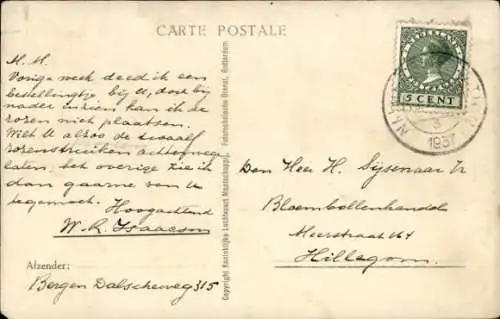 CARTE POSTALE
M. M.
Vorige week deed ik een
bestellingtje bij U, doch bij
nader inzien kan ik de
rozen niet plaatsen.
Wilt U alzoo de twaalf
rozenstruiken achterwege
laten, het overige zie ik
dan gaarne van U
tegemoet. Hoogachtend
W. R. Isaacson
Afzender:
Bergen Dalscheweg 315
Copyright Koninklijke Luchtvaart Maatschappij. Fototechnische Dienst, Rotterdam
NEDERLAND
5 CENT
1937
Den Heer H. Sijsenaar Jr
Bloembollenhandel
Meerstraat 164
Hillegom.